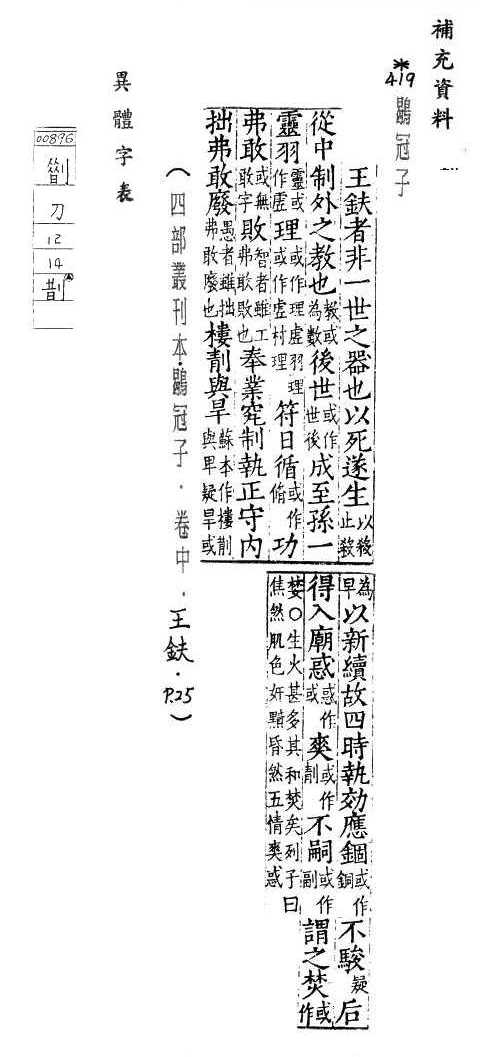 補充資料
*419 鶡冠子
王鈇者非一世之器也以死遂生以殺止殺
從中制外之教也教或為數後世或作世後成至孫一
靈羽靈或作虛理或作理虛羽理或作虛村理符日循或作脩功
弗敢或無敢字敗智者雖工弗敢敗也奉業究制執正守內
拙弗敢廢愚者雖拙弗敢廢也樓劕與旱蘇本作樓劕與早疑旱或
為早以新續故四時執効應錮或作銅不駿疑后
得入廟惑惑作或爽或作劕不嗣或作副謂之焚或作
婪○生火甚多其和焚矣列子曰
焦然肌色奸黣昏然五情爽惑
(四部叢刊本.鶡冠子.卷中.王鈇.P.25)
異體字表
00896
刀
12
14